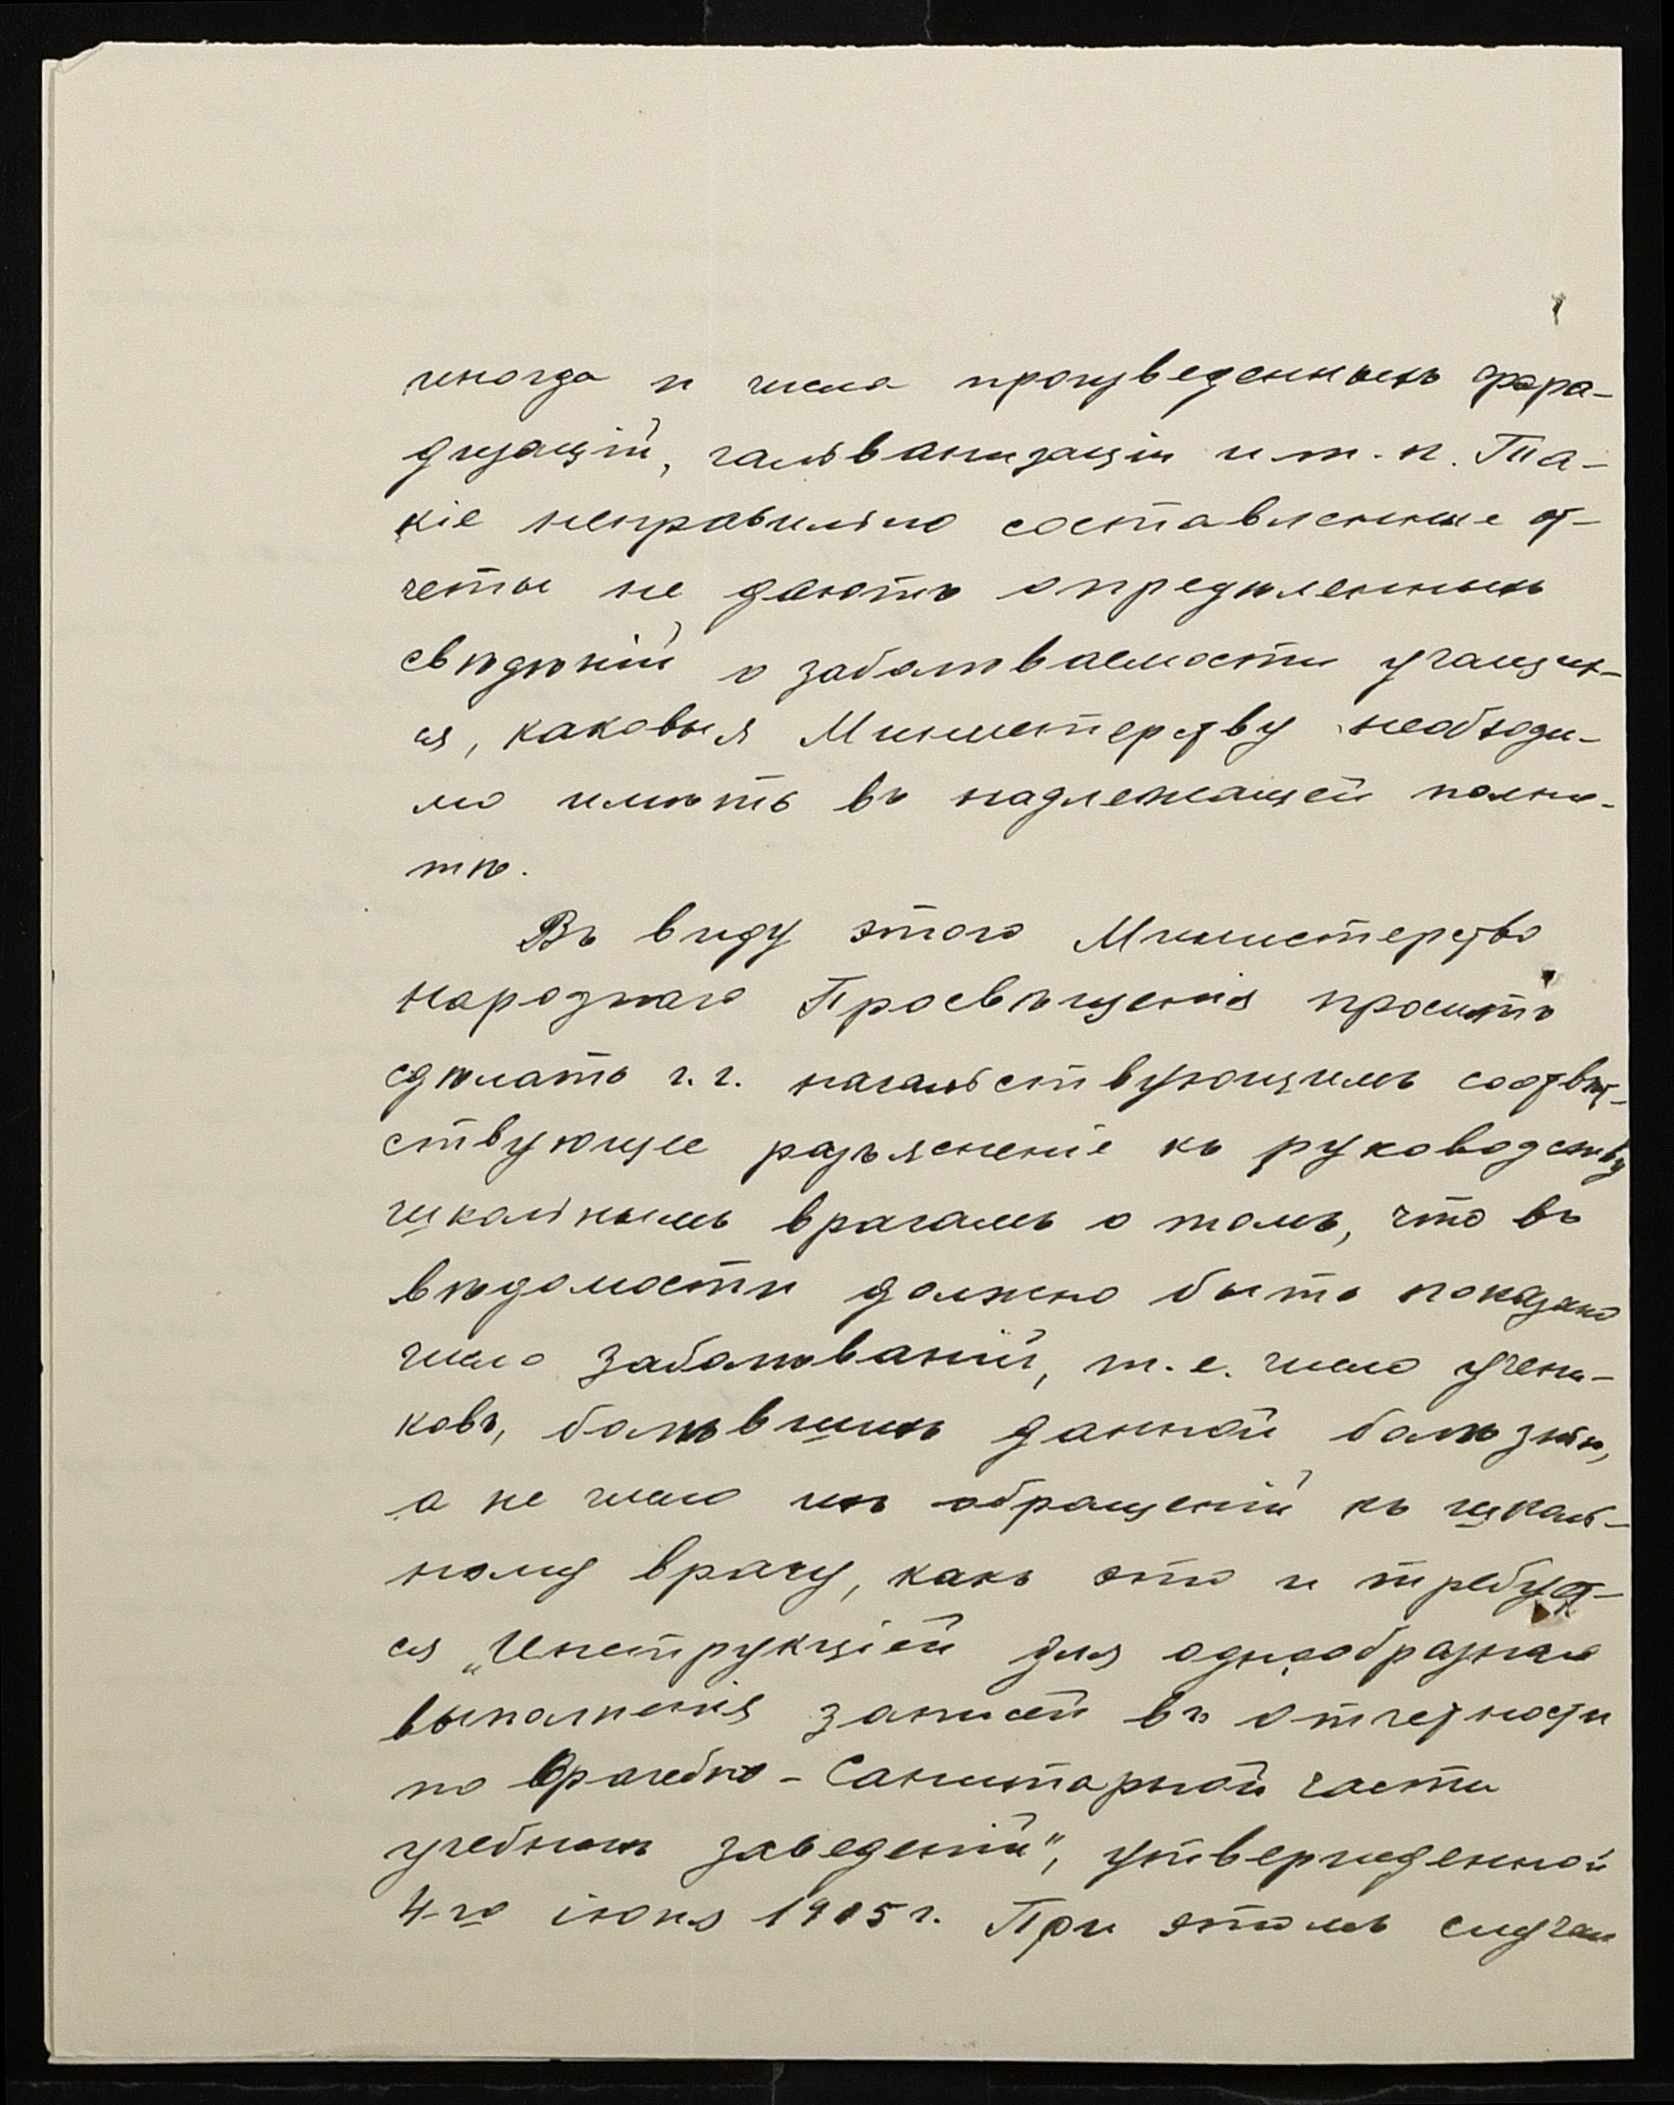 иногда и числа произведенныхъ фара-
дизацій, гальванизацій и т. п. Та-
кіе неправильно составленные от-
четы не даютъ опредѣленныхъ
свѣдѣній о заболѣваемости учащих-
ся, каковыя Министерству необходи-
мо имѣть въ надлежащей полно-
тѣ.
Въ виду этого Министерство
Народнаго Просвѣщенія проситъ
сдѣлать г.г. начальствующимъ соотвѣт-
ствующее разъясненіе къ руководству
школьнымъ врачамъ о томъ, что въ
вѣдомости должно быть показано
число заболѣваній, т. е. число учени-
ковъ, болѣвшихъ данной болѣзнью,
а не число ихъ обращеній къ школь-
ному врачу, какъ это и требует-
ся „Инструкціей для однообразнаго
выполненія записей въ отчетности
по Врачебно-Санитарной части
учебныхъ заведеній", утвержденной
4-го іюня 1905 г. При этомъ случаи